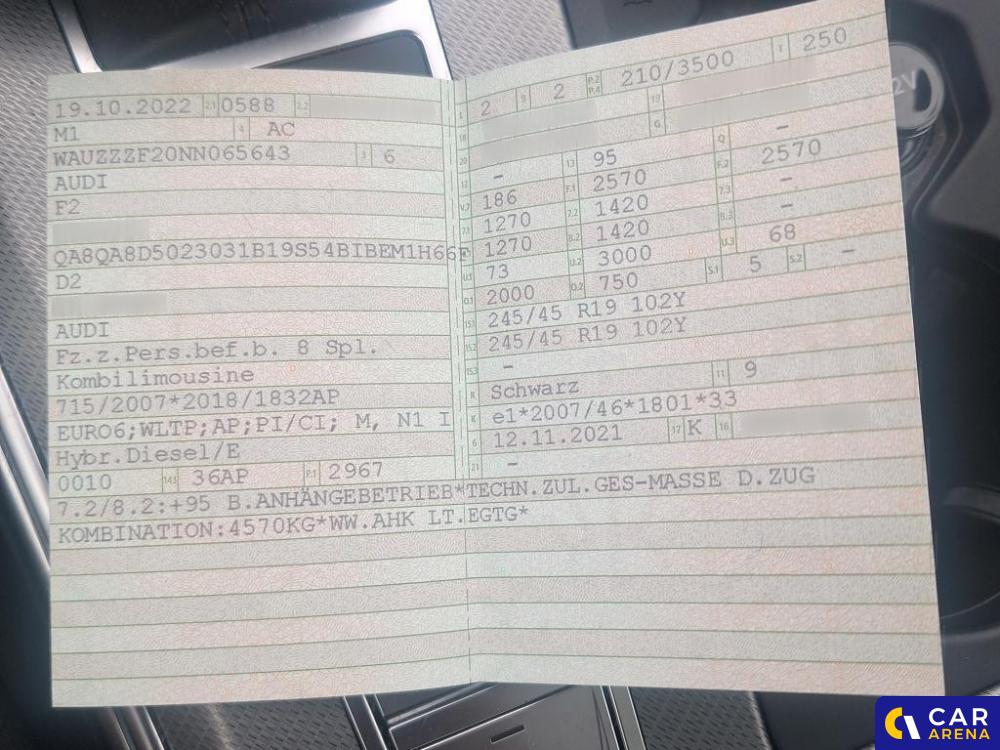 19.10.2022 2.1 0588 2.2
M1 4 AC
WAUZZZF20NN065643 3 6
AUDI
F2
QA8QA8D5023031B19S54BIBEM1H66F
D2
AUDI
Fz.z.Pers.bef.b. 8 Spl.
Kombilimousine
715/2007*2018/1832AP
EURO6;WLTP;AP;PI/CI; M, N1 I
Hybr.Diesel/E
0010 14.1 36AP P.1 2967
L 2 9 2 P.2 P.4 210/3500 T 250
18 19
20 G
12 – 13 95 Q –
V.7 186 F.1 2570 F.2 2570
7.1 1270 7.2 1420 7.3 –
1270 8.2 1420 8.3 –
U.1 73 U.2 3000 U.3 68
O.1 2000 O.2 750 S.1 5 S.2 –
15.1 245/45 R19 102Y
15.2 245/45 R19 102Y
15.3 –
R Schwarz 11 9
K e1*2007/46*1801*33
6 12.11.2021 17 K 16
21 –
7.2/8.2:+95 B.ANHÄNGEBETRIEB*TECHN.ZUL.GES-MASSE D.ZUG
KOMBINATION:4570KG*WW.AHK LT.EGTG*
2V
CAR
ARENA